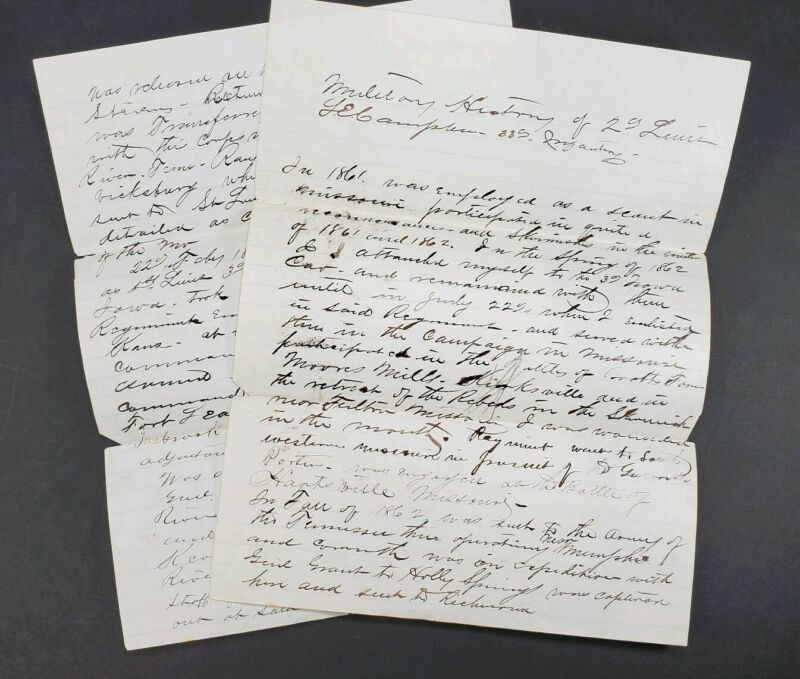 Military History of 2d Lieut
L E Campbell 33d Infantry
In 1861. was employed as a scout in
Missouri participated in quite a
reconnaissance and skirmishes in the winter
of 1861 and 1862. In the Spring of 1862
I attached myself to the 3d Iowa
Cav. and remained with them
until in July 22d, when I enlisted
in said Regiment and served with
them in the Campaign in Missouri
participated in the Battles of
Moores Mills, Kirksville and in
the retreat of the Rebels in the Skirmish
near Fulton Missouri I was wounded
in the mouth. Regiment went to South
western Missouri in pursuit of
Porter. was engaged at the Battle of
Hartsville Missouri
In Fall of 1862 was sent to the Army of
the Tennessee then operating near Memphis
and Corinth was on expedition with
Genl Grant to Holly Springs was captured
here and sent to Richmond
was released
Stevens
was Transferred
with the Corps
River Tenn
Vicksburg
sent to St
detailed as
of the Mo
22d Feby
as 1st Lieut 3d
Iowa. took
Regiment
Kans. at
command
command
Fort Lea
adjutant
Was
Genl.
River
and
River
Staff
out at